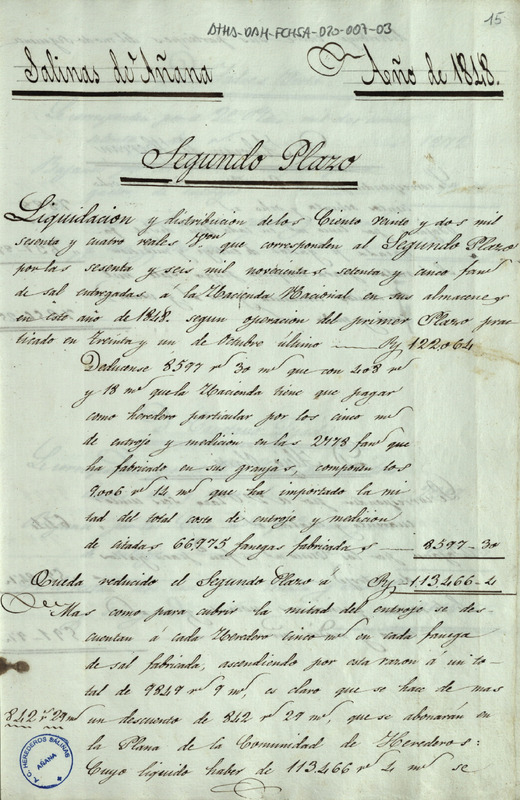 ATHA-DAH-FCHSA-020-007-03
15
Salinas de Añana Año de 1848.
Segundo Plazo
Liquidacion y distribucion de los Ciento veinte y dos mil
sesenta y cuatro reales von que corresponden al Segundo Plazo
por las sesenta y seis mil novecientas setenta y cinco fans
de sal entregadas á la Hacienda Nacional en sus almacenes
en este año de 1848. segun operacion del primer Plazo prac
ticado en Treinta y un de Octubre ultimo Rs 122064
Deducense 8597 rs 30 ms que con 408 rs
y 18 ms que la Hacienda tiene que pagar
como heredero particular por los cinco ms
de entroje y medicion en las 2778 fans que
ha fabricado en sus granjas, componen los
9006 rs 14 ms que ha importado la mi
tad del total costo de entroje y medicion
de citadas 66.975 fanegas fabricadas 8597-30
Queda reducido el Segundo Plazo a Rs 113466-4
Mas como para cubrir la mitad del entroje se des-
cuentan á cada Heredero cinco ms en cada fanega
de sal fabricada, ascendiendo por esta razon á un to-
tal de 9849 rs 9 ms, es claro que se hace de mas
842 rs 29 ms un descuento de 842 rs 29 ms, que se abonarán en
la Plana de la Comunidad de Herederos:
Cuyo liquido haber de 113466 rs 4 ms se
T.C. HEREDEROS SALINAS
AÑANA